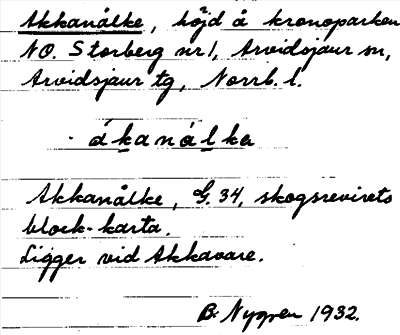 Akkanålke, höjd å kronoparken
NO. Storberg nr 1, Arvidsjaur sn,
Arvidsjaur tg, Norrb. l.
ákanálkə
Akkanålke, G. 34, skogsrevirets
block-karta.
Ligger vid Akkavare.
B. Nygren 1932.